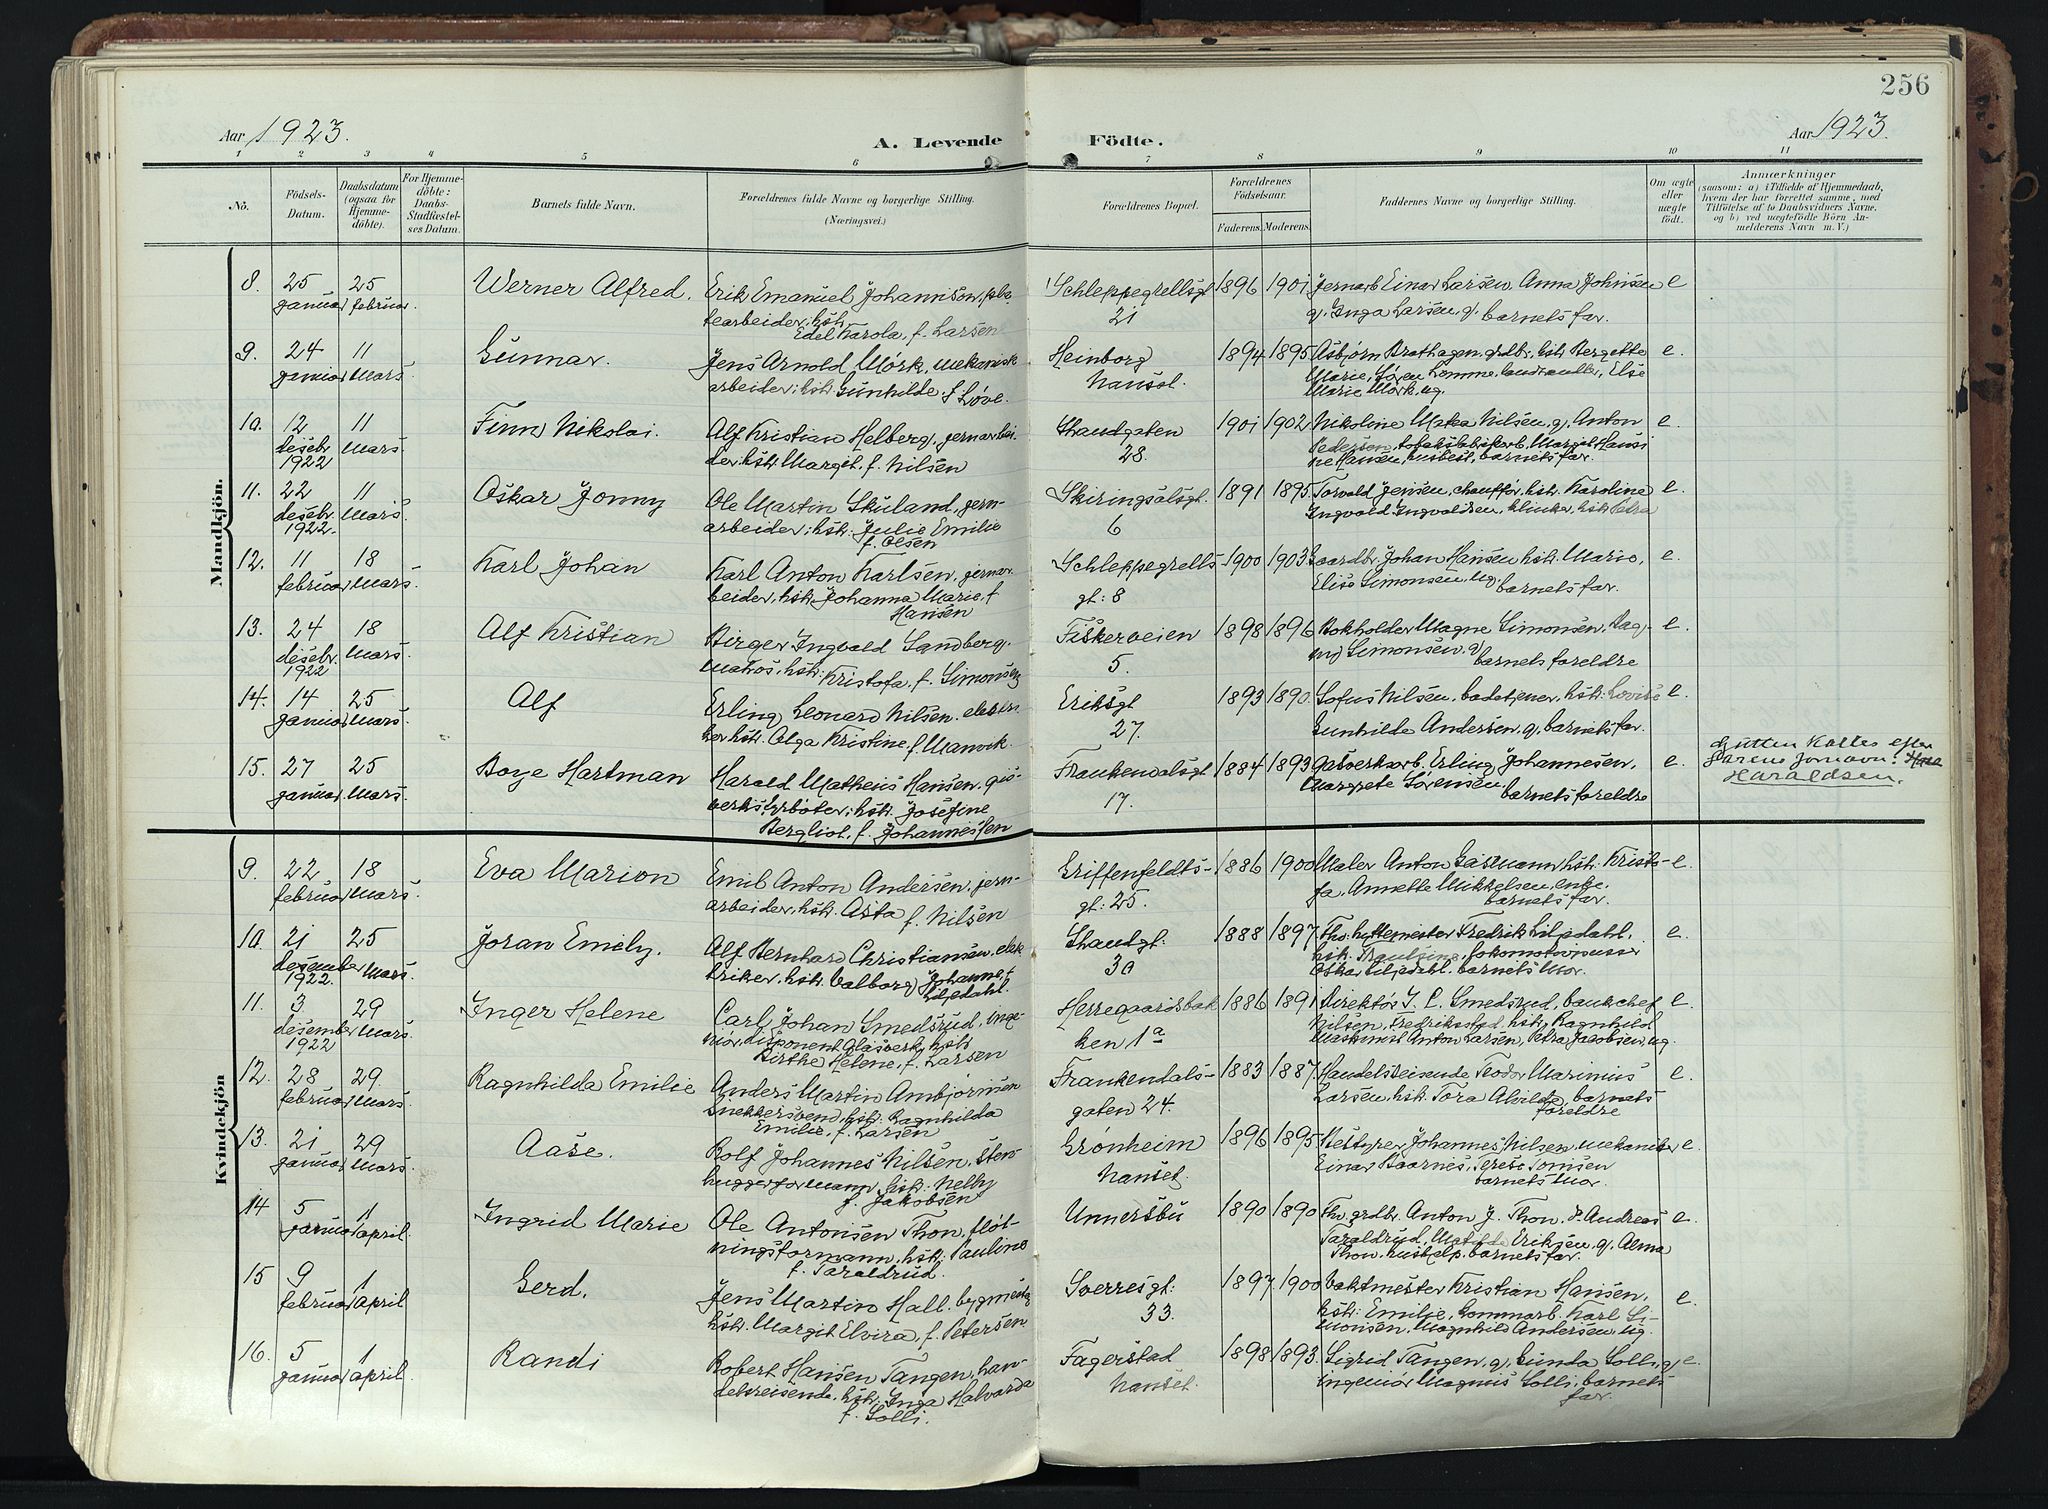 256
Aar 1923.
A. Levende Födte.
Aar 1923.
1 2 3 4 5 6 7 8 9 10 11
No.
Födsels-Datum.
Daabsdatum (ogsaa for Hjemme-döbte).
For Hjemme-döbte: Daabs-Stadfæstel-ses Datum.
Barnets fulde Navn.
Forældrenes fulde Navne og borgerlige Stilling.
(Næringsvei.)
Forældrenes Bopæl.
Forældrenes Födselsaar.
Faderens. Moderens.
Faddernes Navne og borgerlige Stilling.
Om ægte eller uægte födt.
Anmærkninger
(saasom: a) i Tilfælde af Hjemmedaab,
hvem der har forrettet samme, med
Tilföielse af to Daabsvidners Navne.
og b) ved uægtefödte Börn An-
melderens Navn m. V.)
Mandkjön.
8. 25 januar 25 februar. Werner Alfred. Erik Emanuel Johannison,
tearbeider, hstr. Edel Karola, f. Larsen
Schleppegrellsgt 21 1896 1901 Jernarb Einar Larsen, Anna Johnsen e
g. Inga Larsen, g. barnets far.
9. 24 januar 11 Mars. Gunnar. Jens Arnold Mørk, mekanisk
arbeider; hstr. Gunhilde f. Løve.
Heinborg Nanset. 1894 1895 Asbjørn Brathagen, grdbr. hstr. Bergette e.
Marie, Søren Lomme, Else
Marie Mørk, ug.
10. 12 desebr. 1922 11 Mars. Finn Nikolai. Alf Kristian Helberg, jernarbei-
der, hstr. Margit, f. Nilsen
Strandgaten 28. 1901 1902 Nikoline Matea Nilsen, g, Anton e.
Pedersen, tobaksfabrikarb. Margit Hansi
ne Hansen, husbest., barnets far.
11. 22 desebr. 1922. 11 Mars. Oskar Jonny Ole Martin Skuland, jern-
arbeider; hstr. Julie Emilie
f. Olsen
Skiringsalsgt. 6 1891 1895 Torvald Jensen, chauffør, hstr. Karoline e.
Ingvald Ingvaldsen, klinker, hstr. Petra
12. 11 februar 18 Mars. Karl Johan Karl Anton Karlsen, jernar-
beider, hstr. Johanna Marie, f.
Hansen
Schleppegrells-gt: 8 1900 1903 Gaardbr Johan Hansen hstr. Marie, e.
Elise Simonsen, ug. barnets far.
13. 24 desebr. 1922 18 Mars. Alf Kristian Birger Ingvald Sandberg,
matros, hstr. Kristofa, f. Simonsen
Fiskerveien 5. 1898 1896 Bokholder Magne Simonsen, Dag- e.
ny Simonsen. g, barnets foreldre
14. 14 januar 25 Mars. Alf Erling Leonard Nilsen, elektri
ker hstr. Olga Kristine, f. Manvik.
Eriksgt 27. 1893 1890. Sofus Nilsen, badetjener, hstr. Lovise e.
Gunhilde Andersen, g, barnets far.
15. 27 januar 25 Mars. Boye Hartman Harald Matheus Hansen, gas-
verksfyrbøter; hstr. Josefine
Bergliot, f. Johannessen
Frankendalsgt 17. 1884 1893 Gasverksarb. Erling Johannesen, e.
Margrete Sørensen, barnets foreldre
Gutten kaldes efter
farens fornavn:
Haraldsen.
Kvindekjön
9. 22 februar 18 Mars. Eva Marion Emil Anton Andersen, jern-
arbeider, hstr. Asta f. Nilsen
Griffenfeldts-gt: 25. 1886 1900 Maler Anton Gasmann hstr. Kristo- e.
fa, Annette Mikkelsen, enke,
barnets far.
10. 21 desember 1922. 25 Mars. Joran Emely. Alf Bernhard Christiansen, elek
triker, hstr. Valborg Johanne, f.
Liljedahl.
Strandgt. 30 1888 1897 Fhv. hyttemester Fredrik Liljedahl, e.
hstr. lokomotivpusser
Oskar Liljedahl, barnets mor.
11. 3 desember 1922 29 Mars. Inger Helene Carl Johan Smedsrud, inge-
niør, disponent Glasverk, hstr
Birthe Helene, f. Larsen
Herregaardsbak ken 1a 1886 1891 Direktør J. C. Smedsrud, bankchef e.
Nilsen, Fredriksstad, hstr. Ragnhild
Maskinist Anton Larsen, Petra Jacobsen, ug.
12. 28 februar 29. Mars. Ragnhilda Emilie Anders Martin Ambjørnsen
Snekkersvend, hstr. Ragnhilda
Emilie, f. Larsen
Frankendals-gaten 24. 1883 1887. Handelsreisende Teodor Marinius e.
Larsen, hstr. Tora Alvilde, barnets
foreldre
13. 21 januar 29 Mars. Aase. Rolf Johannes Nilsen, sten-
huggerformann, hstr. Nelly
f. Jakobsen
Grønheim Nanset. 1896 1895 Bestyrer Johannes Nilsen, mekaniker e.
Einar Baarnes, Terese Tomsen
barnets mor.
14 5 januar 1 april. Ingrid Marie Ole Antonsen Thon, fløt-
ningsformann, hstr. Pauline
f. Taraldrud.
Unnersbu 1890 1890 Fhv. grdbr. Anton J. Thon, Andreas e.
Taraldrud, Matilde Eriksen, g, Alma
Thon, hushelp. barnets far.
15 9 februar 1 april Gerd. Jens Martin Hall. bygmester,
hstr. Margit Elvira, f. Petersen
Sverresgt: 33. 1897. 1900 Vaktmester Kristian Hansen, e.
hstr: Emilie, Karl Si-
monsen, Magnhild Andersen, ug.
16. 5 januar 1 april. Randi Robert Hansen Tangen, han-
delsreisende, hstr. Inga Halvarda
f. Solli.
Fagerstad Nanset. 1898 1893. Sigrid Tangen, g, Gunda Solli, g, e.
ingeniør Magnus Solli, barnets
far.